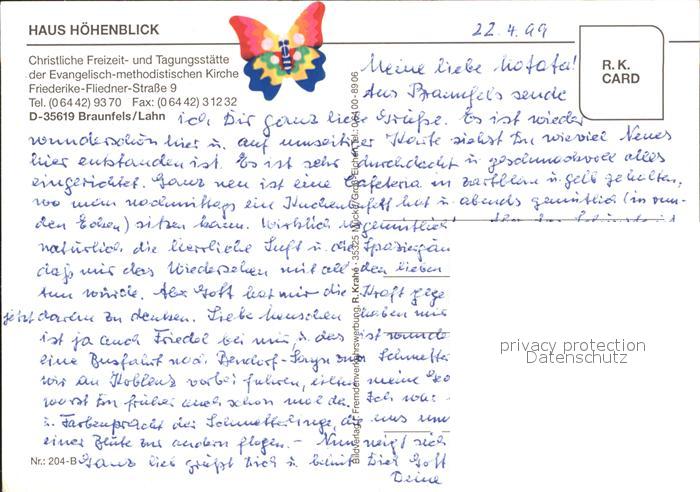 HAUS HÖHENBLICK
Christliche Freizeit- und Tagungsstätte
der Evangelisch-methodistischen Kirche
Friederike-Fliedner-Straße 9
Tel. (0 64 42) 93 70 Fax: (0 64 42) 3 12 32
D-35619 Braunfels/Lahn
22.4.99
R. K.
CARD
Meine liebe
Aus Braunfels sende
ich Dir ganz liebe Grüße. Es ist wieder
wunderschön hier u. auf umseitiger Karte siehst Du wieviel Neues
hier entstanden ist. Es ist sehr durchdacht u. geschmackvoll alles
eingerichtet. Ganz neu ist eine Cafeteria in zartblau u. gelb gehalten,
wo man nachmittags ein Kuchenbuffett hat u. abends gemütlich (in run-
den Ecken) sitzen kann. Wirklich urgemütlich!
natürlich die herrliche Luft u. die Spaziergän
daß mir das Wiedersehen mit all den lieben
tun würde. Aber Gott hat mir die Kraft gege
jetzt daran zu denken. Liebe Menschen haben mir
ist ja auch Friedel bei mir, u. das ist wunde
eine Busfahrt nach Bendorf-Sayn zum Schmette
wir an Koblenz vorbei fuhren, eilten meine Ge
warst Du früher auch schon mal da. Ich war
u. Farbenpracht der Schmetterlinge, die uns um
einer Blüte zur andern flogen. - Nun neigt sich
Ganz lieb grüßt Dich u. behüt Dich Gott
Deine
Nr.: 204-B
R. Krahe · 35325 Mücke/Groß-Eichen
privacy protection
Datenschutz